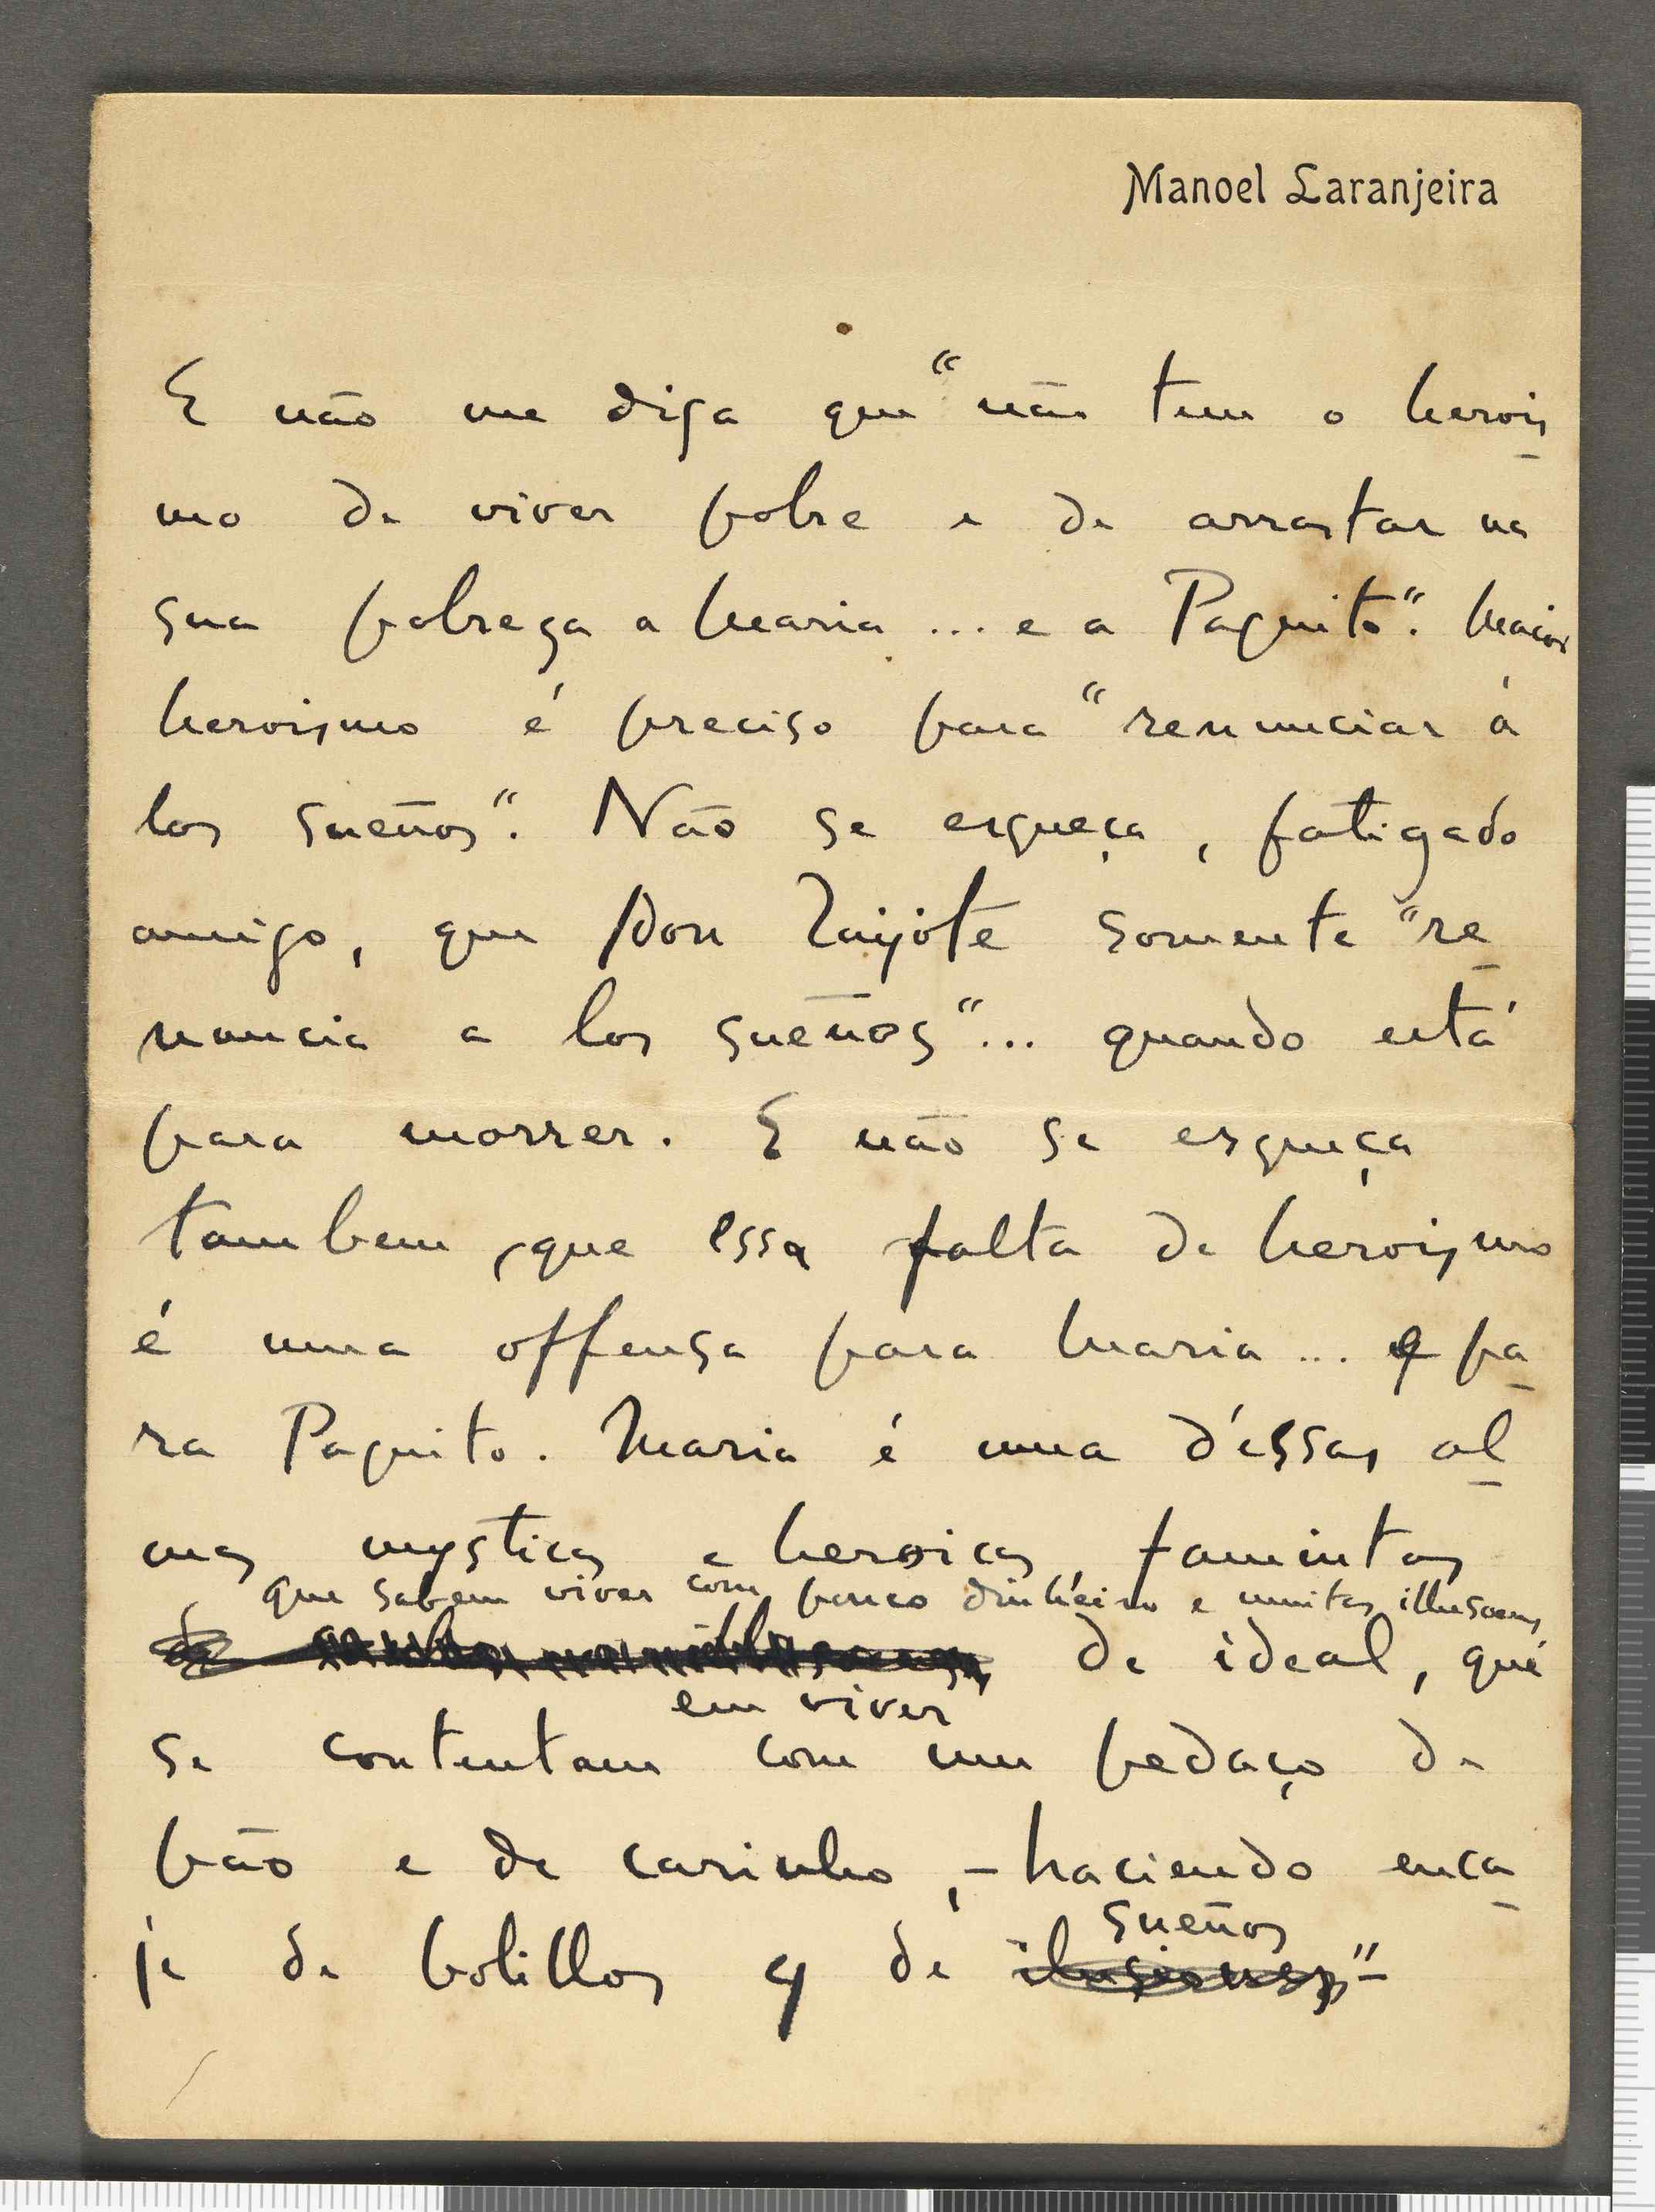 Manoel Laranjeira
E não me diga que "não tem o herois
mo de viver pobre e de arrastar na
sua pobreza a Maria ... e a Paquito". Maior
heroismo é preciso para "renunciar á
los sueños". Não se esqueça, fatigado
amigo, que Don Quijote somente "re
nuncia a los sueños"... quando está
para morrer. E não se esqueça
tambem, que essa falta de heroismo
é uma offensa para Maria ... e pa
ra Paquito. Maria é uma d'éssas al
mas mysticas e heroicas, famintas
que sabem viver com pouco dinheiro e muitas illusoens,
de ideal, que
em viver
se contentam com um pedaço de
pão e de carinho, - haciendo enca
je de bolillos y de
sueños
ilusiones" -